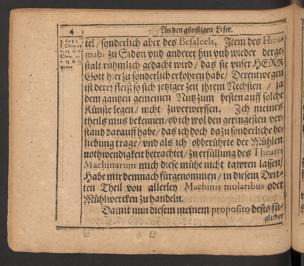 4
An den günstigen Leser.
tel / sonderlich aber des Besaleels, Item des Hiramabi zu Sidon vnd anderer hin vnd wieder dergestalt rühmlich gedacht wird / daß sie vnser HERR
Gott hierzu sonderlich erkohren habe / Derentwegen
ist derer fleiß so sich jetziger zeit ihrem Nechsten / zu
dem gantzen gemeinen Nutz zum besten auff solche
Künste legen / nicht zuverwerffen. Ich meines
theils mus bekennen / ob ich wol den geringesten verstand darauff habe / daß ich doch dazu sonderliche beliebung trage / vnd als ich obberührte der Mühlen
nothwendigkeit betrachtet / zu erfüllung des Theatri
Machinarum mich diese mühe nicht tawren lassen /
Habe mir demnach fürgenommen / in diesem Dritten Theil von allerley Machinis molaribus oder
Mühlwercken zu handeln.
Damit nun diesem meinem proposito desto füglicher